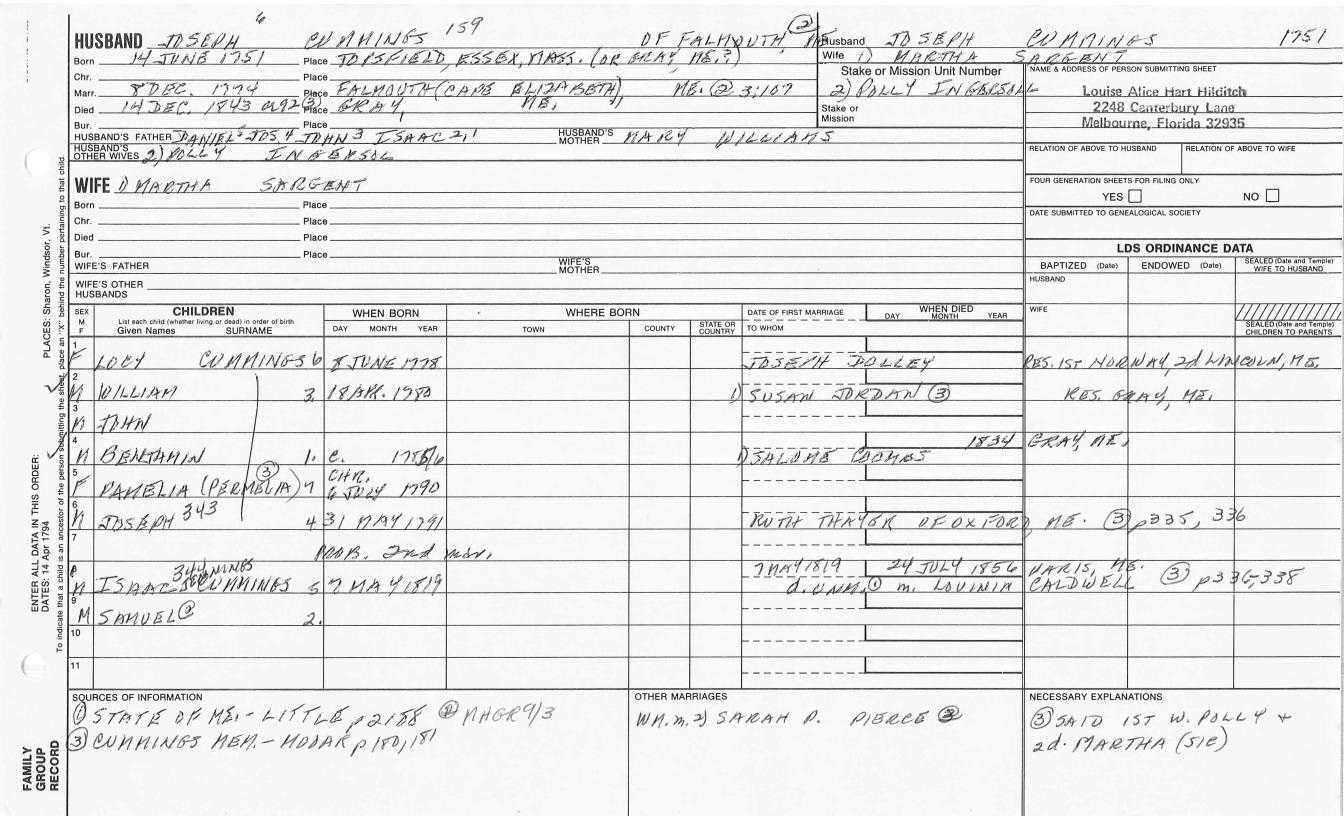 6
159
HUSBAND JOSEPH CUMMINGS OF FALMOUTH, ME. ②
Born 14 JUNE 1751 Place TOPSFIELD, ESSEX, MASS. (OR GRAY, ME.?)
Chr. Place
Marr. 8 DEC. 1774 Place FALMOUTH (CAPE ELIZABETH) ME. ② 3:107
Died 14 DEC. 1843 a92 ③ Place GRAY, ME. "
Bur. Place
HUSBAND'S FATHER DANIEL5 JOS. 4 JOHN 3 ISAAC 2,1 HUSBAND'S MOTHER MARY WILLIAMS
HUSBAND'S OTHER WIVES 2) POLLY INGERSOL
Husband JOSEPH CUMMINGS 1751
Wife 1) MARTHA SARGENT
Stake or Mission Unit Number 2) POLLY INGERSOLL
Stake or Mission
NAME & ADDRESS OF PERSON SUBMITTING SHEET
Louise Alice Hart Hilditch
2248 Canterbury Lane
Melbourne, Florida 32935
RELATION OF ABOVE TO HUSBAND RELATION OF ABOVE TO WIFE
FOUR GENERATION SHEETS FOR FILING ONLY
YES NO
DATE SUBMITTED TO GENEALOGICAL SOCIETY
WIFE 1) MARTHA SARGENT
Born Place
Chr. Place
Died Place
Bur. Place
WIFE'S FATHER WIFE'S MOTHER
WIFE'S OTHER HUSBANDS
LDS ORDINANCE DATA
BAPTIZED (Date) ENDOWED (Date) SEALED (Date and Temple) WIFE TO HUSBAND
HUSBAND
WIFE
SEALED (Date and Temple) CHILDREN TO PARENTS
SEX M F CHILDREN List each child (whether living or dead) in order of birth Given Names SURNAME
WHEN BORN DAY MONTH YEAR
WHERE BORN TOWN COUNTY STATE OR COUNTRY
DATE OF FIRST MARRIAGE TO WHOM
WHEN DIED DAY MONTH YEAR
1 F LOEY CUMMINGS 6 8 JUNE 1778 JOSEPH DOLLEY RES. 1ST NORWAY, 2d LINCOLN, ME.
2 M WILLIAM 3. 18 APR. 1780 1) SUSAN JORDAN ③ RES. GRAY, ME.
3 M JOHN
4 M BENJAMIN 1. C. 1785/6 1) SALOME COOMBS 1834 GRAY, ME.
5 F PAMELIA (PERMELIA) ③ 7 CHR. 6 JULY 1790
6 M JOSEPH 343 4 31 MAY 1791 RUTH THAYER OF OXFORD, ME. ③ p335, 336
7 PROB. 2nd mar.
8 M ISAAC 344 CUMMINGS 5 7 MAY 1819 7 MAY 1819 24 JULY 1856 PARIS, ME.
d. UNM. ① m. LOUINIA CALDWELL ③ p336-338
9 M SAMUEL ② 2.
10
11
SOURCES OF INFORMATION
① STATE OF ME. - LITTLE p2188 ② NHGR 9/3
③ CUMMINGS MEM. - MOOAR p180, 181
OTHER MARRIAGES
WM. m. 2) SARAH P. PIERCE ②
NECESSARY EXPLANATIONS
③ SAID 1ST W. POLLY +
2d. MARTHA (SIC)
PLACES: Sharon, Windsor, Vt.
ENTER ALL DATA IN THIS ORDER:
DATES: 14 Apr 1794
To indicate that a child is an ancestor of the person submitting the sheet, place an "X" behind the number pertaining to that child.
FAMILY GROUP RECORD